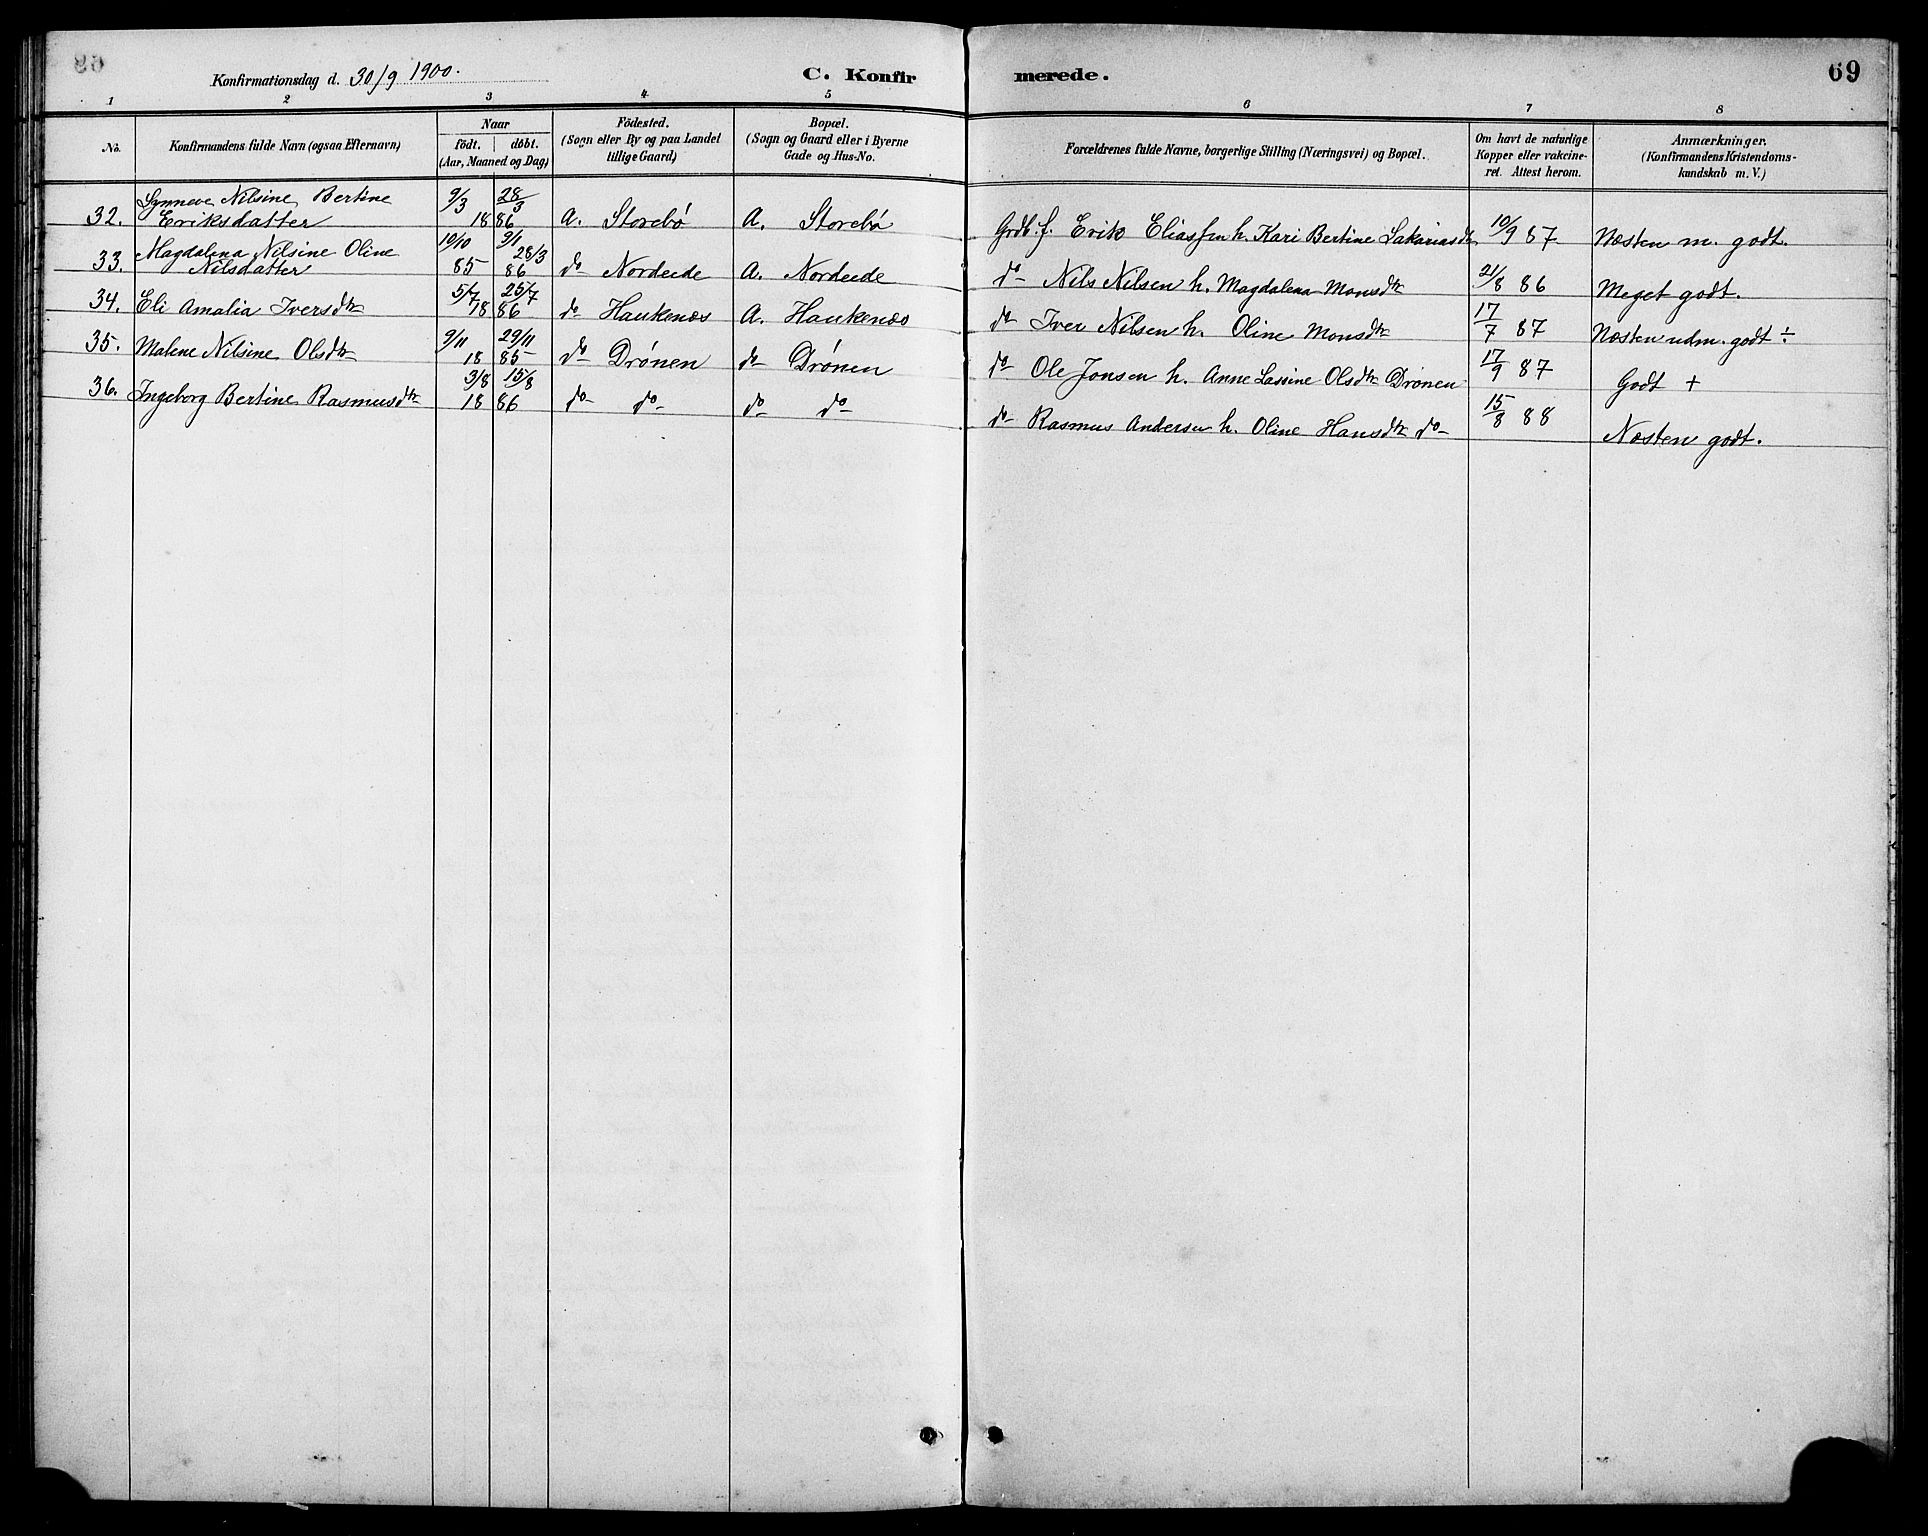 Konfirmationsdag d. 30/9 1900.
C. Konfirmerede.
69
1 2 3 4 5 6 7 8
No.
Konfirmandens fulde Navn (ogsaa Efternavn)
Naar
födt. döbt.
(Aar, Maaned og Dag)
Födested.
(Sogn eller By og paa Landet
tillige Gaard)
Bopæl.
(Sogn og Gaard eller i Byerne
Gade og Hus-No.
Forældrenes fulde Navne, borgerlige Stilling (Næringsvei) og Bopæl.
Om havt de naturlige
Kopper eller vakcine-
ret. Attest herom.
Anmærkninger.
(Konfirmandens Kristendoms-
kundskab m. V.)
32. Synneve Nilsine Bertine Eriksdatter 9/3 28/3 1886 A. Storebø A. Storebø Grdb. f. Erik Eliassen h. Kari Bertine Sakariasdtr 10/9 87 Næsten m. godt.
33. Magdalena Nilsine Oline Nilsdatter 19/10 85 9/1 28/3 86 do Nordeide A. Nordeide do Nils Nilsen h. Magdalena Monsdtr 21/8 86 Meget godt.
34. Eli Amalia Iversdtr 5/7 25/7 1886 do Haukenæs A. Haukenæs do Iver Nilsen h. Oline Monsdtr 17/7 87 Næsten udm. godt ÷
35. Malene Nilsine Olsdtr 9/11 29/11 1885 do Drønen do Drønen do Ole Jonsen h. Anne Lassine Olsdtr Drønen 17/9 87 Godt +
36. Ingeborg Bertine Rasmusdtr 3/8 15/8 1886 do do do do do Rasmus Andersen h. Oline Hansdtr do 15/8 88 Næsten godt.